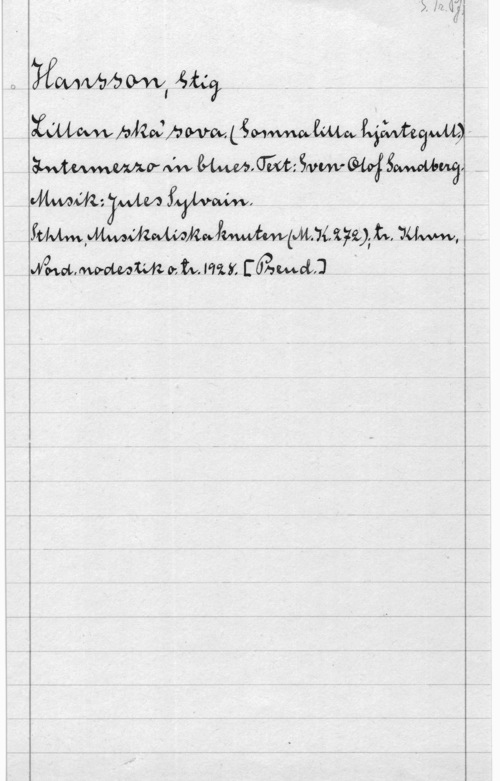 Hansson, Stig
Lillan ska' sova. (Somna lilla hjärtegull.)
Intermezzo in blues. Text: Sven-Olof Sandberg.
Musik: Jules Sylvain.
Sthlm, Musikaliska knuten (M.K. 272), tr. Khvn,
Nord. nodestik o. tr. 1928. [Pseud.]